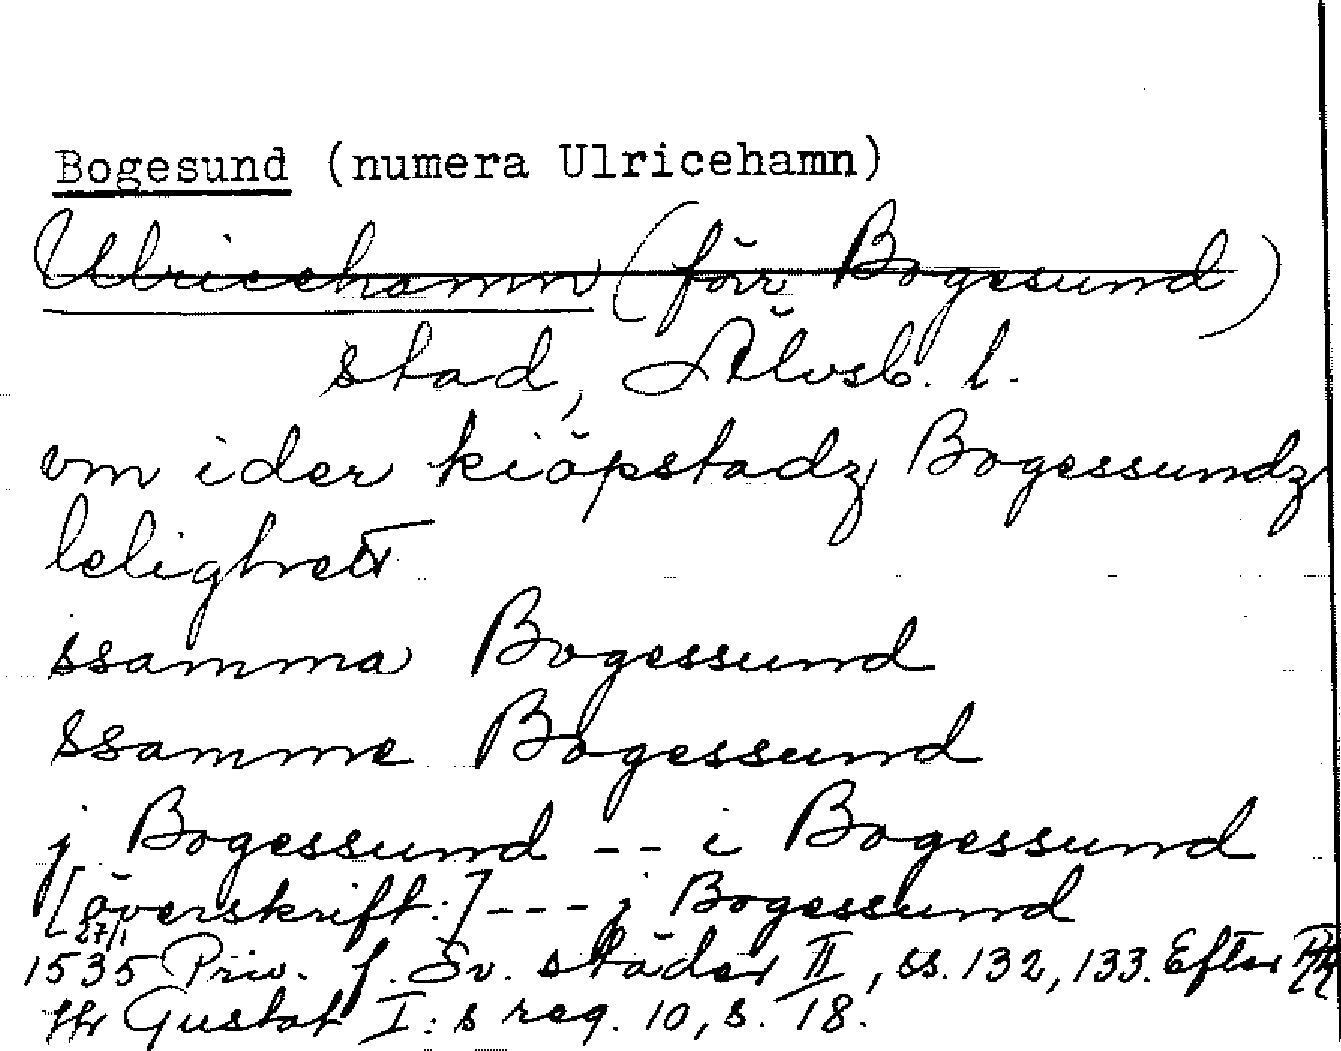 Bogesund (numera Ulricehamn)
Ulricehamn (förr Bogesund)
stad, Älvsb. l.
vm ider kiöpstadz Bogessundz
leligheett
ssamma Bogessund
ssamme Bogessund
j Bogessund -- i Bogessund
[överskrift:] --- j Bogessund
27/1
1535 Priv. f. Sv. städer II, ss. 132, 133. Efter
Gustaf I:s reg. 10, s. 18.